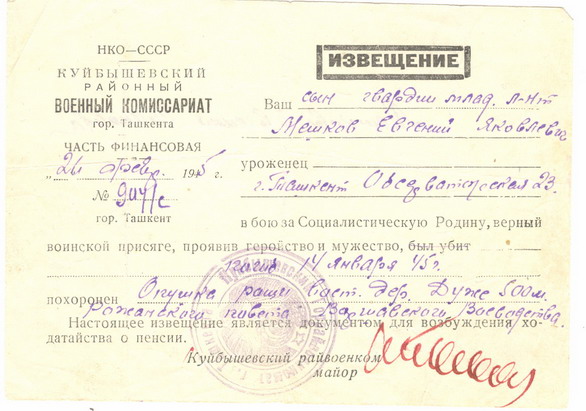 НКО—СССР
КУЙБЫШЕВСКИЙ
РАЙОННЫЙ
ВОЕННЫЙ КОМИССАРИАТ
гор. Ташкента
ЧАСТЬ ФИНАНСОВАЯ
„26 февр. 1945 г.
№ 904/с
гор. Ташкент
ИЗВЕЩЕНИЕ
Ваш сын гвардии млад. л-нт
Мешков Евгений Яковлевич
уроженец
г. Ташкент Обсерваторская 23.
в бою за Социалистическую Родину, верный
воинской присяге, проявив геройство и мужество, был убит
погиб 14 января 45 г.
похоронен Опушка рощи вост. дер. Дуже 500 м.
Рожанского повета Варшавского Воеводства.
Настоящее извещение является документом для возбуждения хо-
датайства о пенсии.
Куйбышевский райвоенком
майор